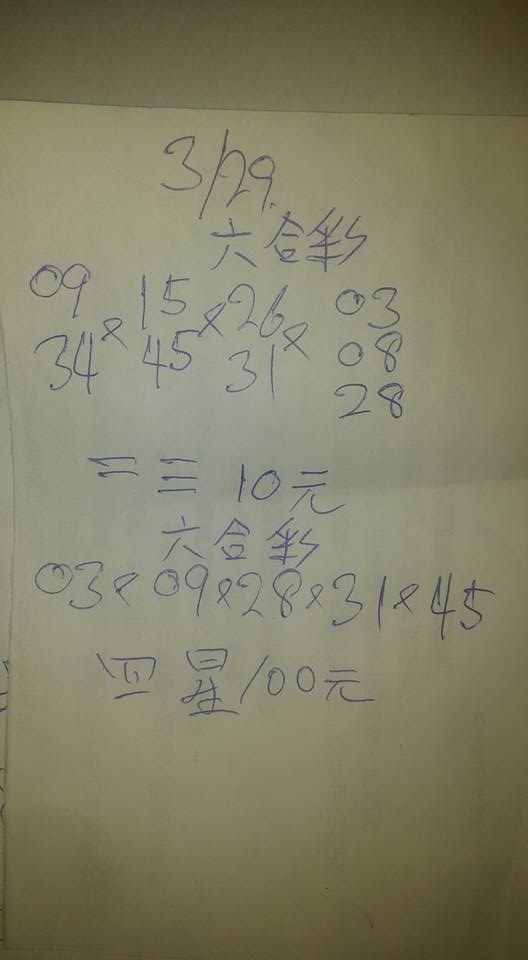 3/29.
六合彩
09 × 15 × 26 × 03
34 45 31 08
28
二 三 10元
六合彩
03×09×28×31×45
四星100元